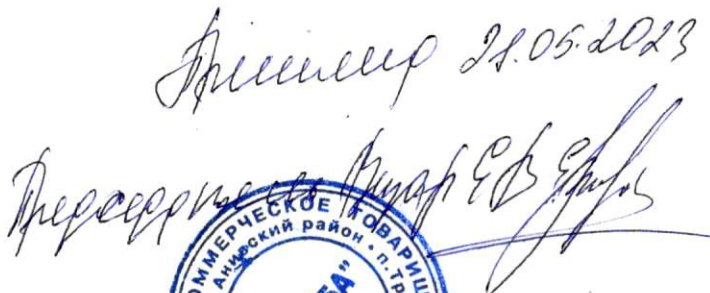 Приняла 21.05.2023
Председатель Е В
ОММЕРЧЕСКОЕ ТОВАРИЩ
Анивский район • п.Тр
БА"